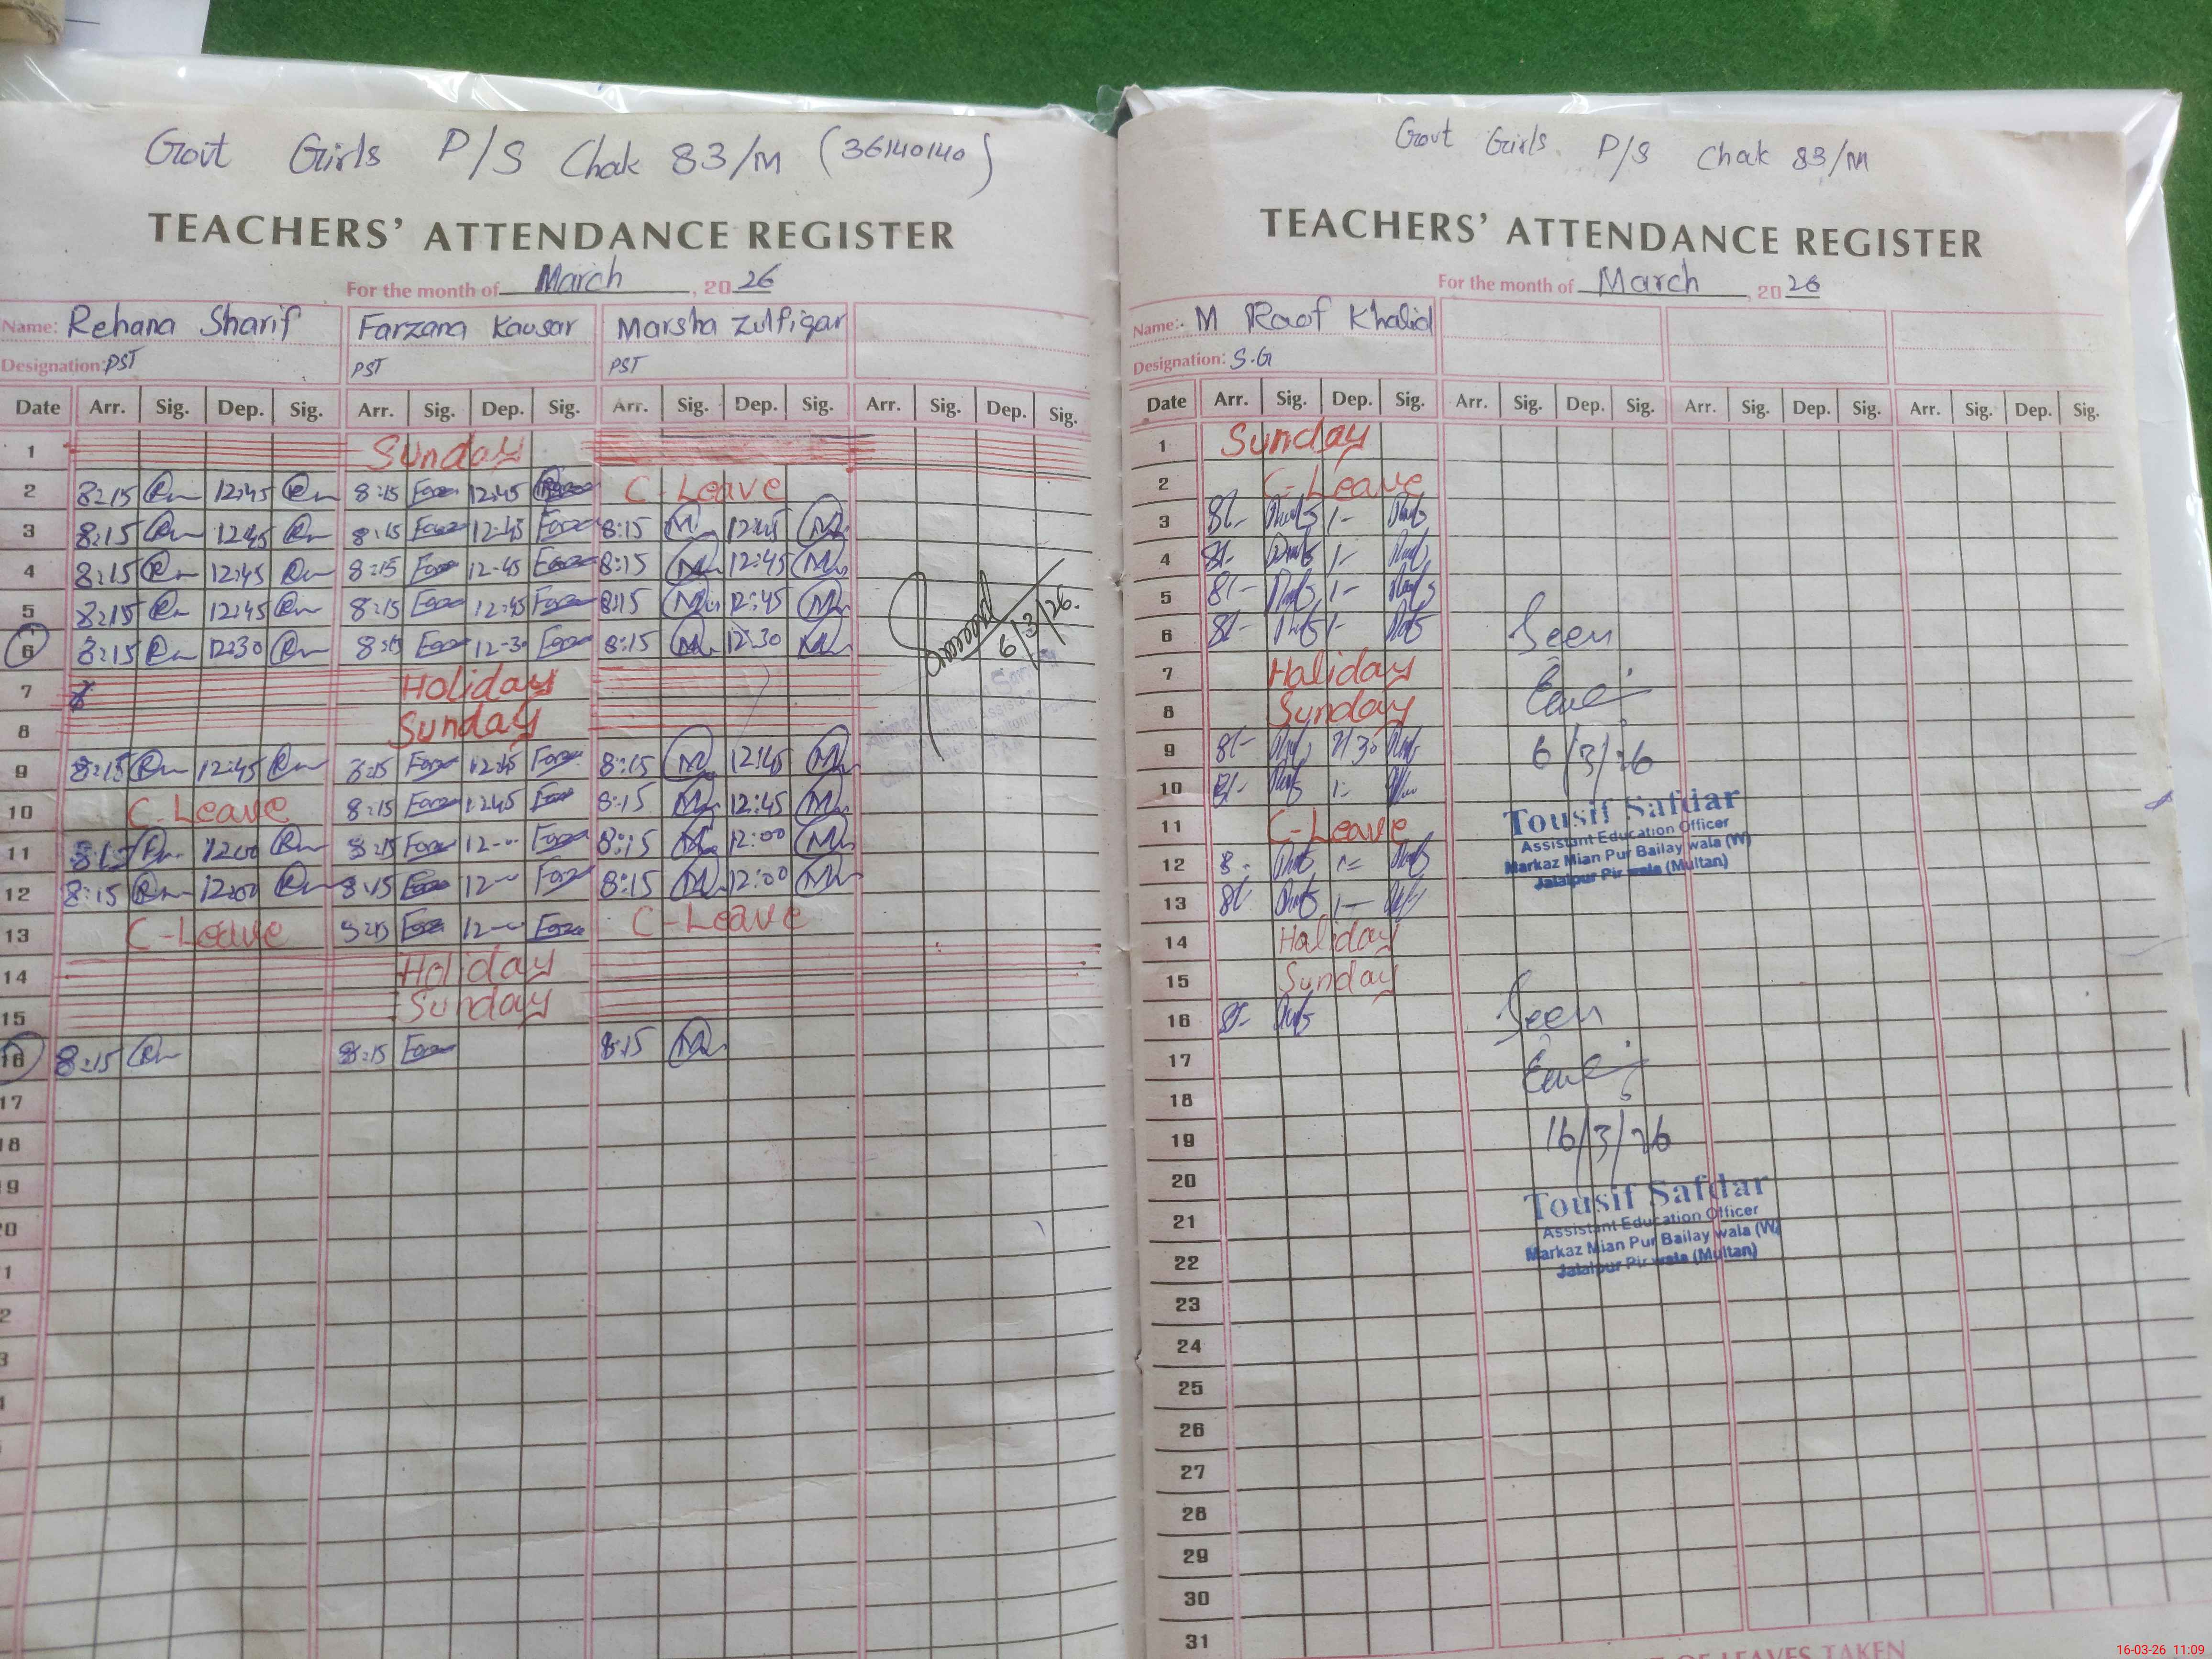 Govt Girls P/S Chak 83/M (36140140)
TEACHERS' ATTENDANCE REGISTER
For the month of March, 2026
Name: Rehana Sharif Farzana Kausar Marsha Zulfiqar
Designation: PST PST PST
Date Arr. Sig. Dep. Sig. Arr. Sig. Dep. Sig. Arr. Sig. Dep. Sig. Arr. Sig. Dep. Sig.
1 Sunday
2 8:15 12:45 8:15 12:45 C-Leave
3 8:15 12:45 8:15 12:45 8:15 12:45
4 8:15 12:45 8:15 12-45 8:15 12:45
5 8:15 12:45 8:15 12:45 8:15 12:45
6 8:15 12:30 8:15 12-30 8:15 12:30
6/3/26.
7 Holiday
8 Sunday
9 8:15 12:45 8:15 12:45 8:15 12:45
10 C-Leave 8:15 12:45 8:15 12:45
11 8:15 12:00 8:15 12-- 8:15 12:00
12 8:15 12:00 8:15 12-- 8:15 12:00
13 C-Leave 8:15 12-- C-Leave
14 Holiday
15 Sunday
16 8:15 8:15 8:15
17
18
19
20
Govt Girls P/S Chak 83/M
TEACHERS' ATTENDANCE REGISTER
For the month of March, 2026
Name: M Raof Khalid
Designation: S.G
Date Arr. Sig. Dep. Sig. Arr. Sig. Dep. Sig. Arr. Sig. Dep. Sig. Arr. Sig. Dep. Sig.
1 Sunday
2 C-Leave
3 8/- 1-
4 8/- 1-
5 8/- 1-
6 8/- 1- Seen
7 Haliday
8 Sunday
9 8/- 6/3/26
10 8/- 1-
Tousif Safdar
Assistant Education Officer
Markaz Mian Pur Bailay wala (W)
Jalalpur Pir wala (Multan)
11 C-Leave
12 8- 1=
13 8/- 1-
14 Haliday
15 Sunday
16 8/- Seen
17
18
19 16/3/26
20
Tousif Safdar
Assistant Education Officer
Markaz Mian Pur Bailay wala (W)
Jalalpur Pir wala (Multan)
21
22
23
24
25
26
27
28
29
30
31
OF LEAVES TAKEN
16-03-26 11:09